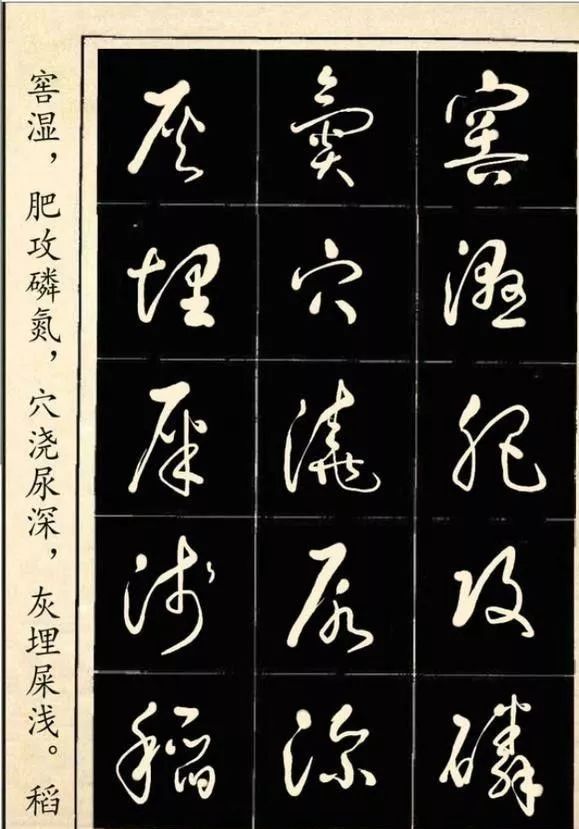 窖湿肥攻磷
氮穴浇尿深
灰埋屎浅稻
窖湿，肥攻磷氮，穴浇尿深，灰埋屎浅。稻